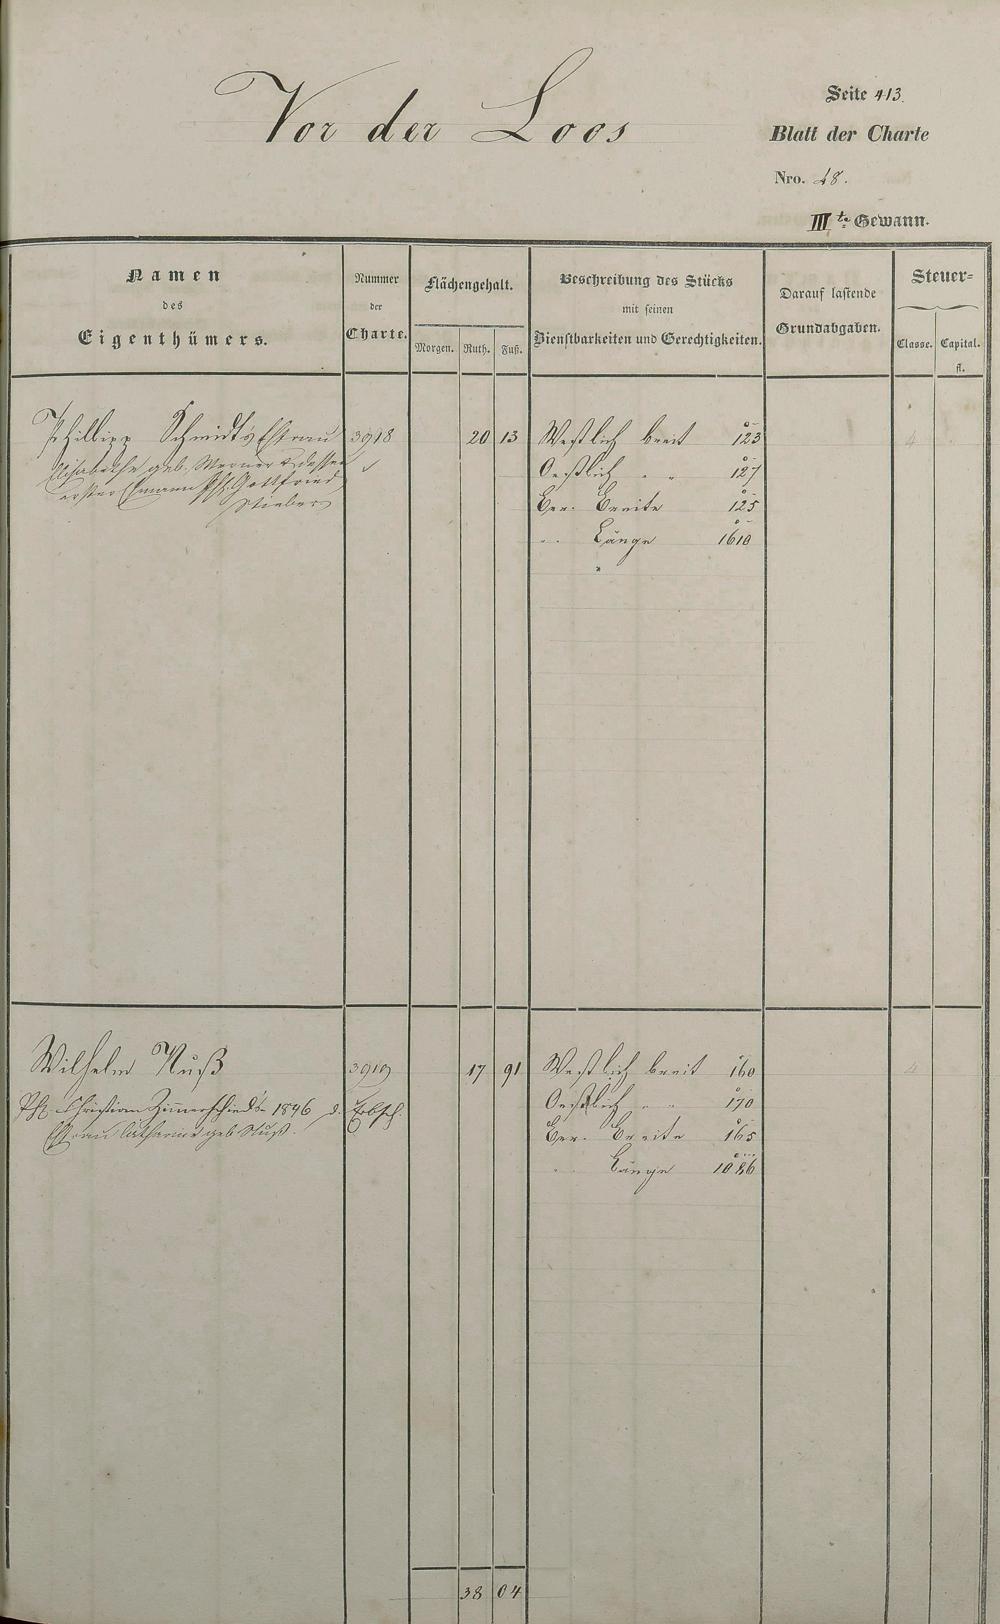 Vor der Loos
Seite 413.
Blatt der Charte
Nro. 48.
III te Gewann.
Namen
des
Eigenthümers.
Nummer
der
Charte.
Flächengehalt.
Morgen. Ruth. Fuß.
Beschreibung des Stücks
mit seinen
Dienstbarkeiten und Gerechtigkeiten.
Darauf lastende
Grundabgaben.
Steuer=
Classe. Capital.
fl.
Philipp Schmidt's Ehfrau 3918 20 13 Westlich breit 123 4
Elisabethe geb. Werner & dessen Oestlich " " 127
erster Ehmann Gottfried Ber. Breite 125
Stieber
" Länge 1610
Wilhelm Nuß 3919 17 91 Westlich breit 160 4
Christian Zimmerschied's 1846 d. Erbsch. Oestlich " " 170
Ehfrau Catharine geb. Nuß. Ber. Breite 165
" Länge 1086
38 04